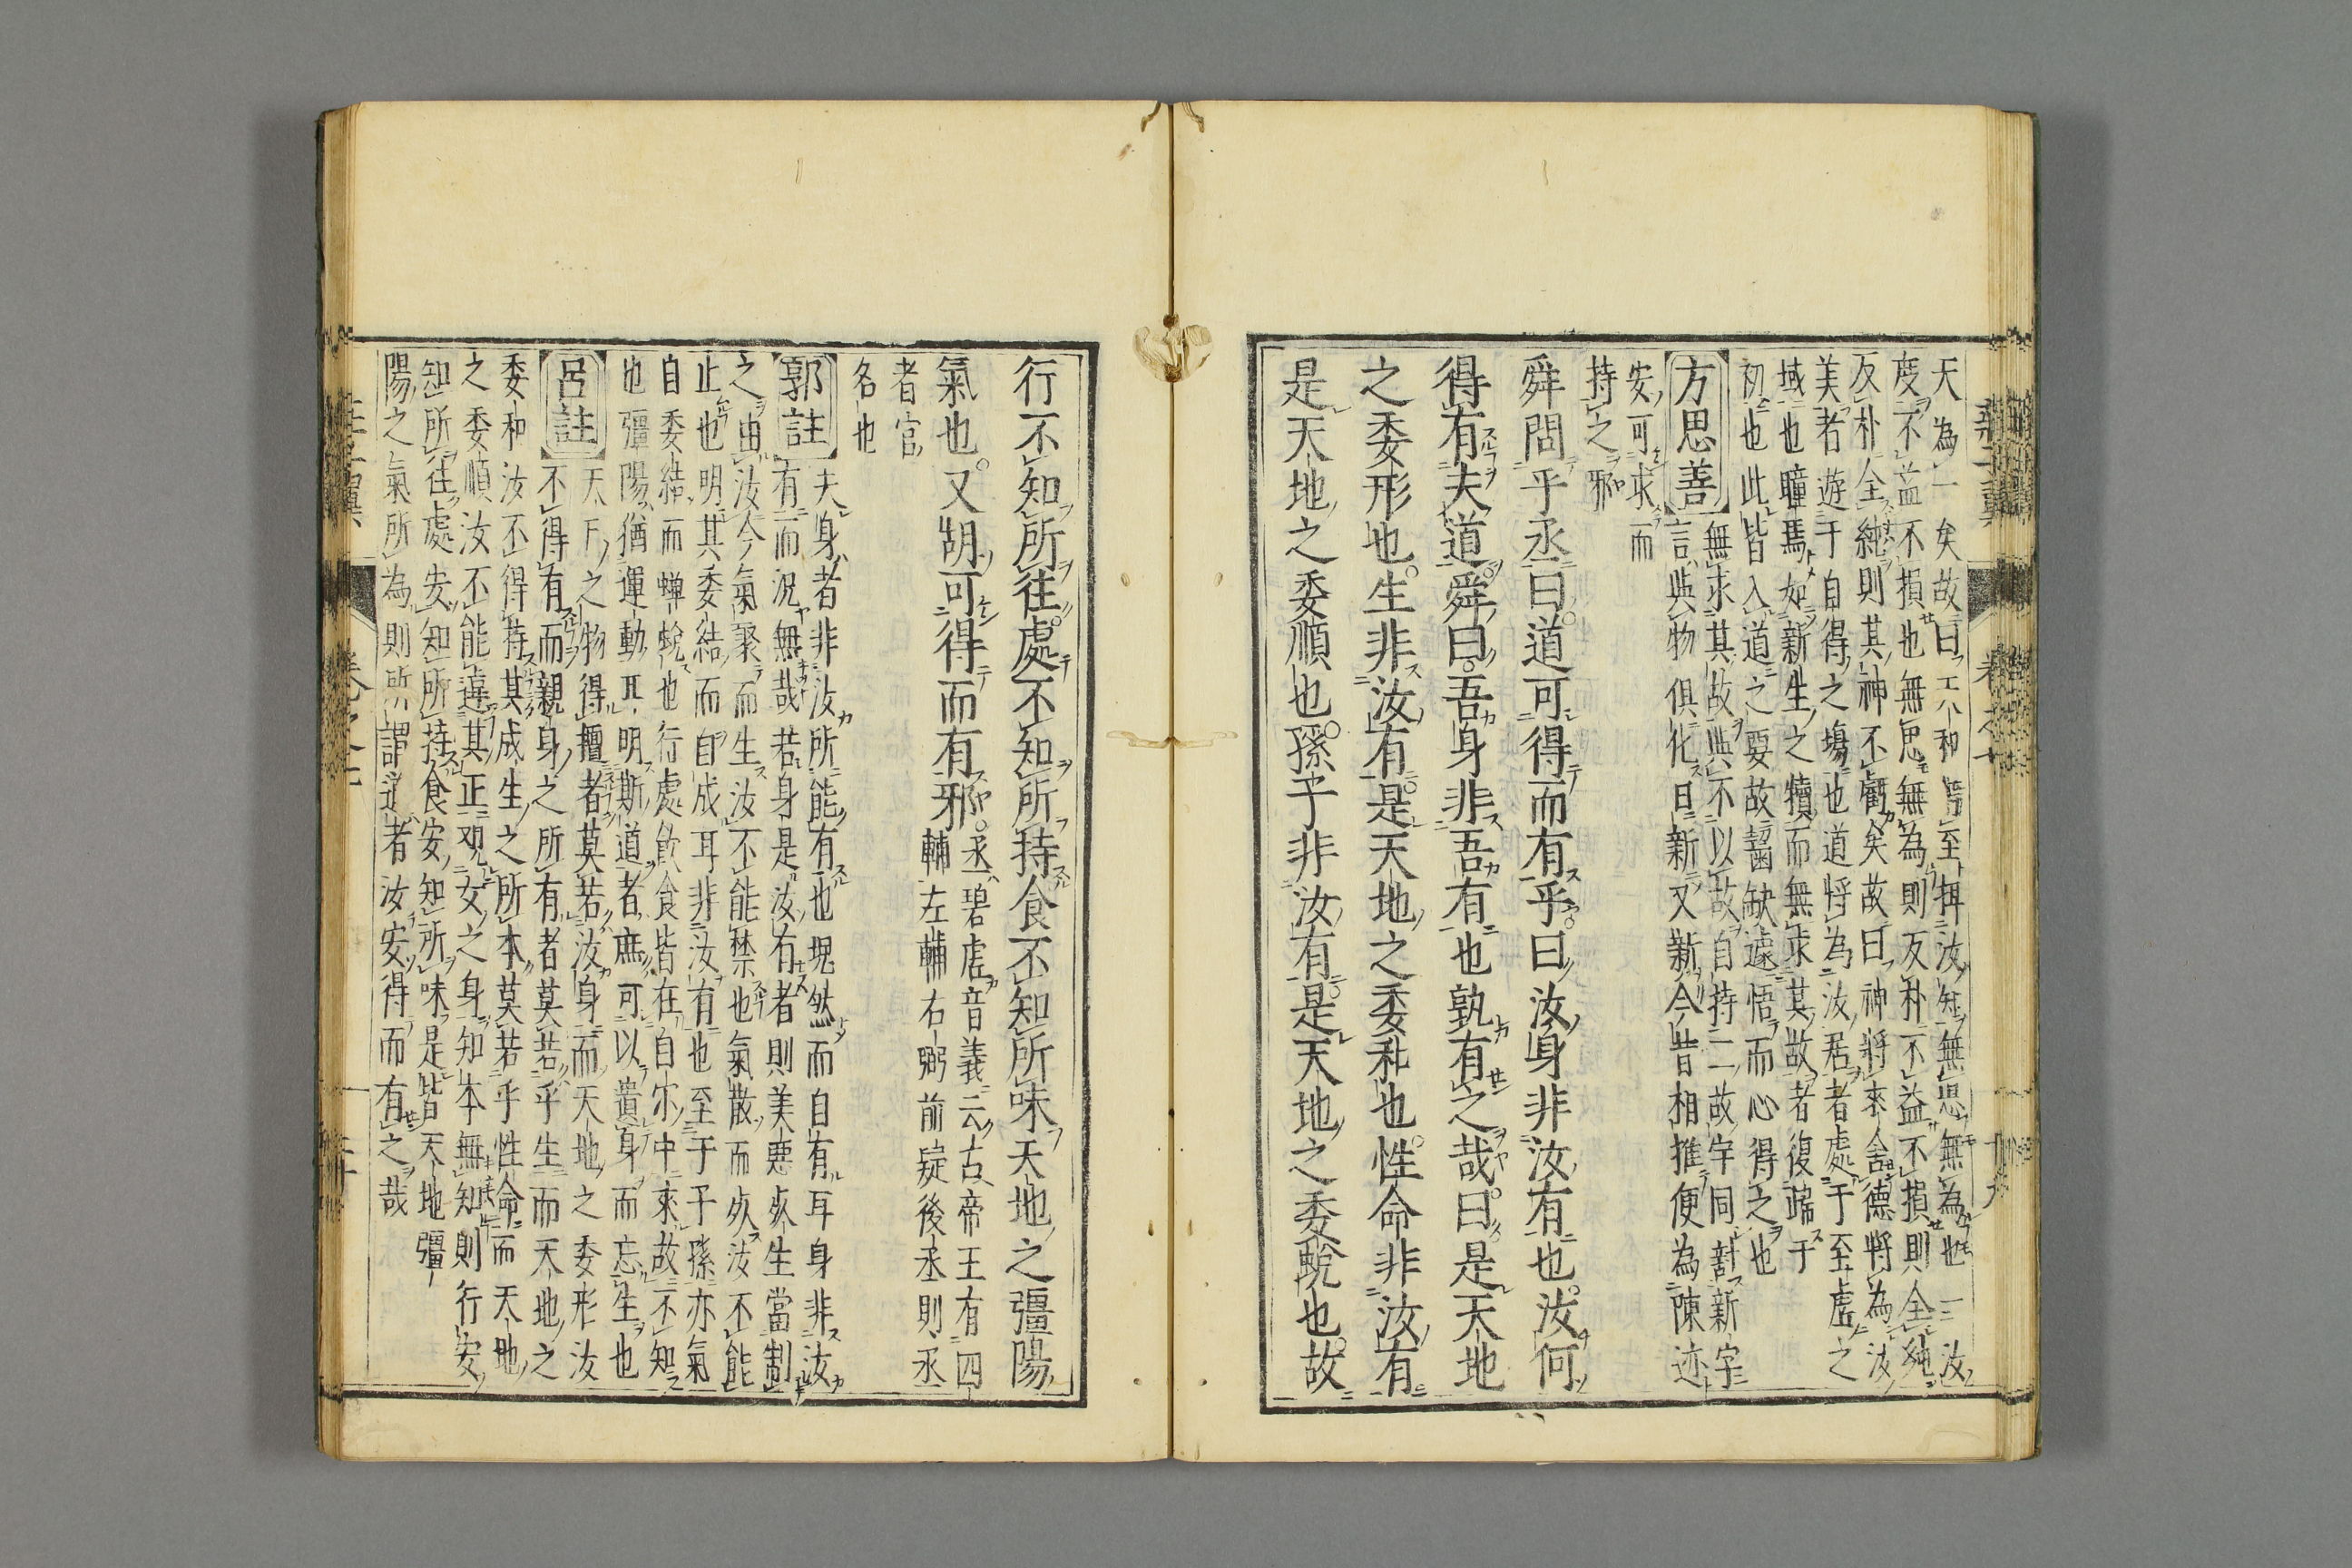 天為一矣故曰天和將至攝汝知無思無為也一汝
度不益不損也無思無為則反朴不益不損則全純
反朴全純則其神不虧矣故曰神將來舍德將為汝
美者遊于自得之場也道將為汝居者處于至虛之
域也瞳焉如新生之犢而無求其故者復歸于
初也此皆入道之要故齧缺遽悟而心得之也
方思善
無求其故與不以故自持二故字同對新字
言與物俱化日新又新今昔相推便為陳迹
安可求而
持之邪
舜問乎丞曰道可得而有乎曰汝身非汝有也汝何
得有夫道舜曰吾身非吾有也孰有之哉曰是天地
之委形也生非汝有是天地之委和也性命非汝有
是天地之委順也孫子非汝有是天地之委蛻也故
莊子翼 卷之七 十九
行不知所往處不知所持食不知所味天地之彊陽
氣也又胡可得而有邪
丞碧虛音義云古帝王有四
輔左輔右弼前疑後丞則丞
者官
名也
郭註
夫身者非汝所能有也塊然而自有耳身非汝
有而況無哉若身是汝有者則美惡死生當制
之由汝今氣聚而生汝不能禁也氣散而死汝不能
止也明其委結而自成耳非汝有也至于子孫亦氣
自委結而蟬蛻也行處飲食皆在自尓中來故不知
也彊陽猶運動耳明斯道者庶可以遺身而忘生也
呂註
天下之物得擅者莫若汝身而天地之委形汝
不得有而親身之所有者莫若乎生而天地之
委和汝不得持其成生之所本莫若乎性命而天地
之委順汝不能違其正觀女之身知本無知則行安
知所往處安知所持食安知所味是皆天地彊
陽之氣所為則所謂道者汝安得而有之哉